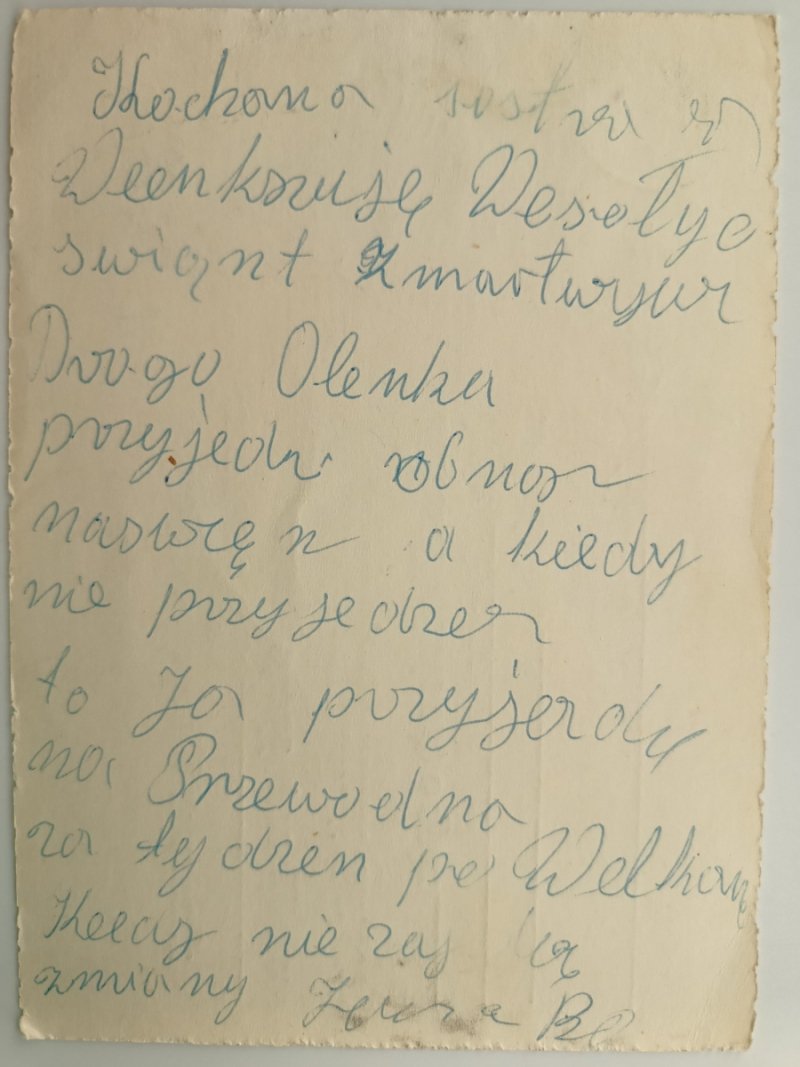 Kochana sostra
Wesołyc
swiąnt Zmartwyw
Drogo Olenka
przyjedz obnosz
naswięn a kiedy
nie przyjedzen
to Ja przyjerdę
na Przewodna
za tydzen po Welkanę
Keedy nie zaj
zmiany